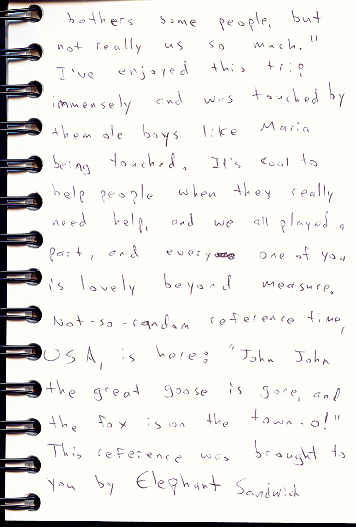 bothers some people, but
not really us so much."
I've enjoyed this trip
immensely and was touched by
them ole boys like Maria
being touched. It's cool to
help people when they really
need help, and we all played a
part, and every one of you
is lovely beyond measure.
Not-so-random reference time,
USA, is here: "John John
the great goose is gone, and
the fox is on the town-o!"
This reference was brought to
you by Elephant Sandwich